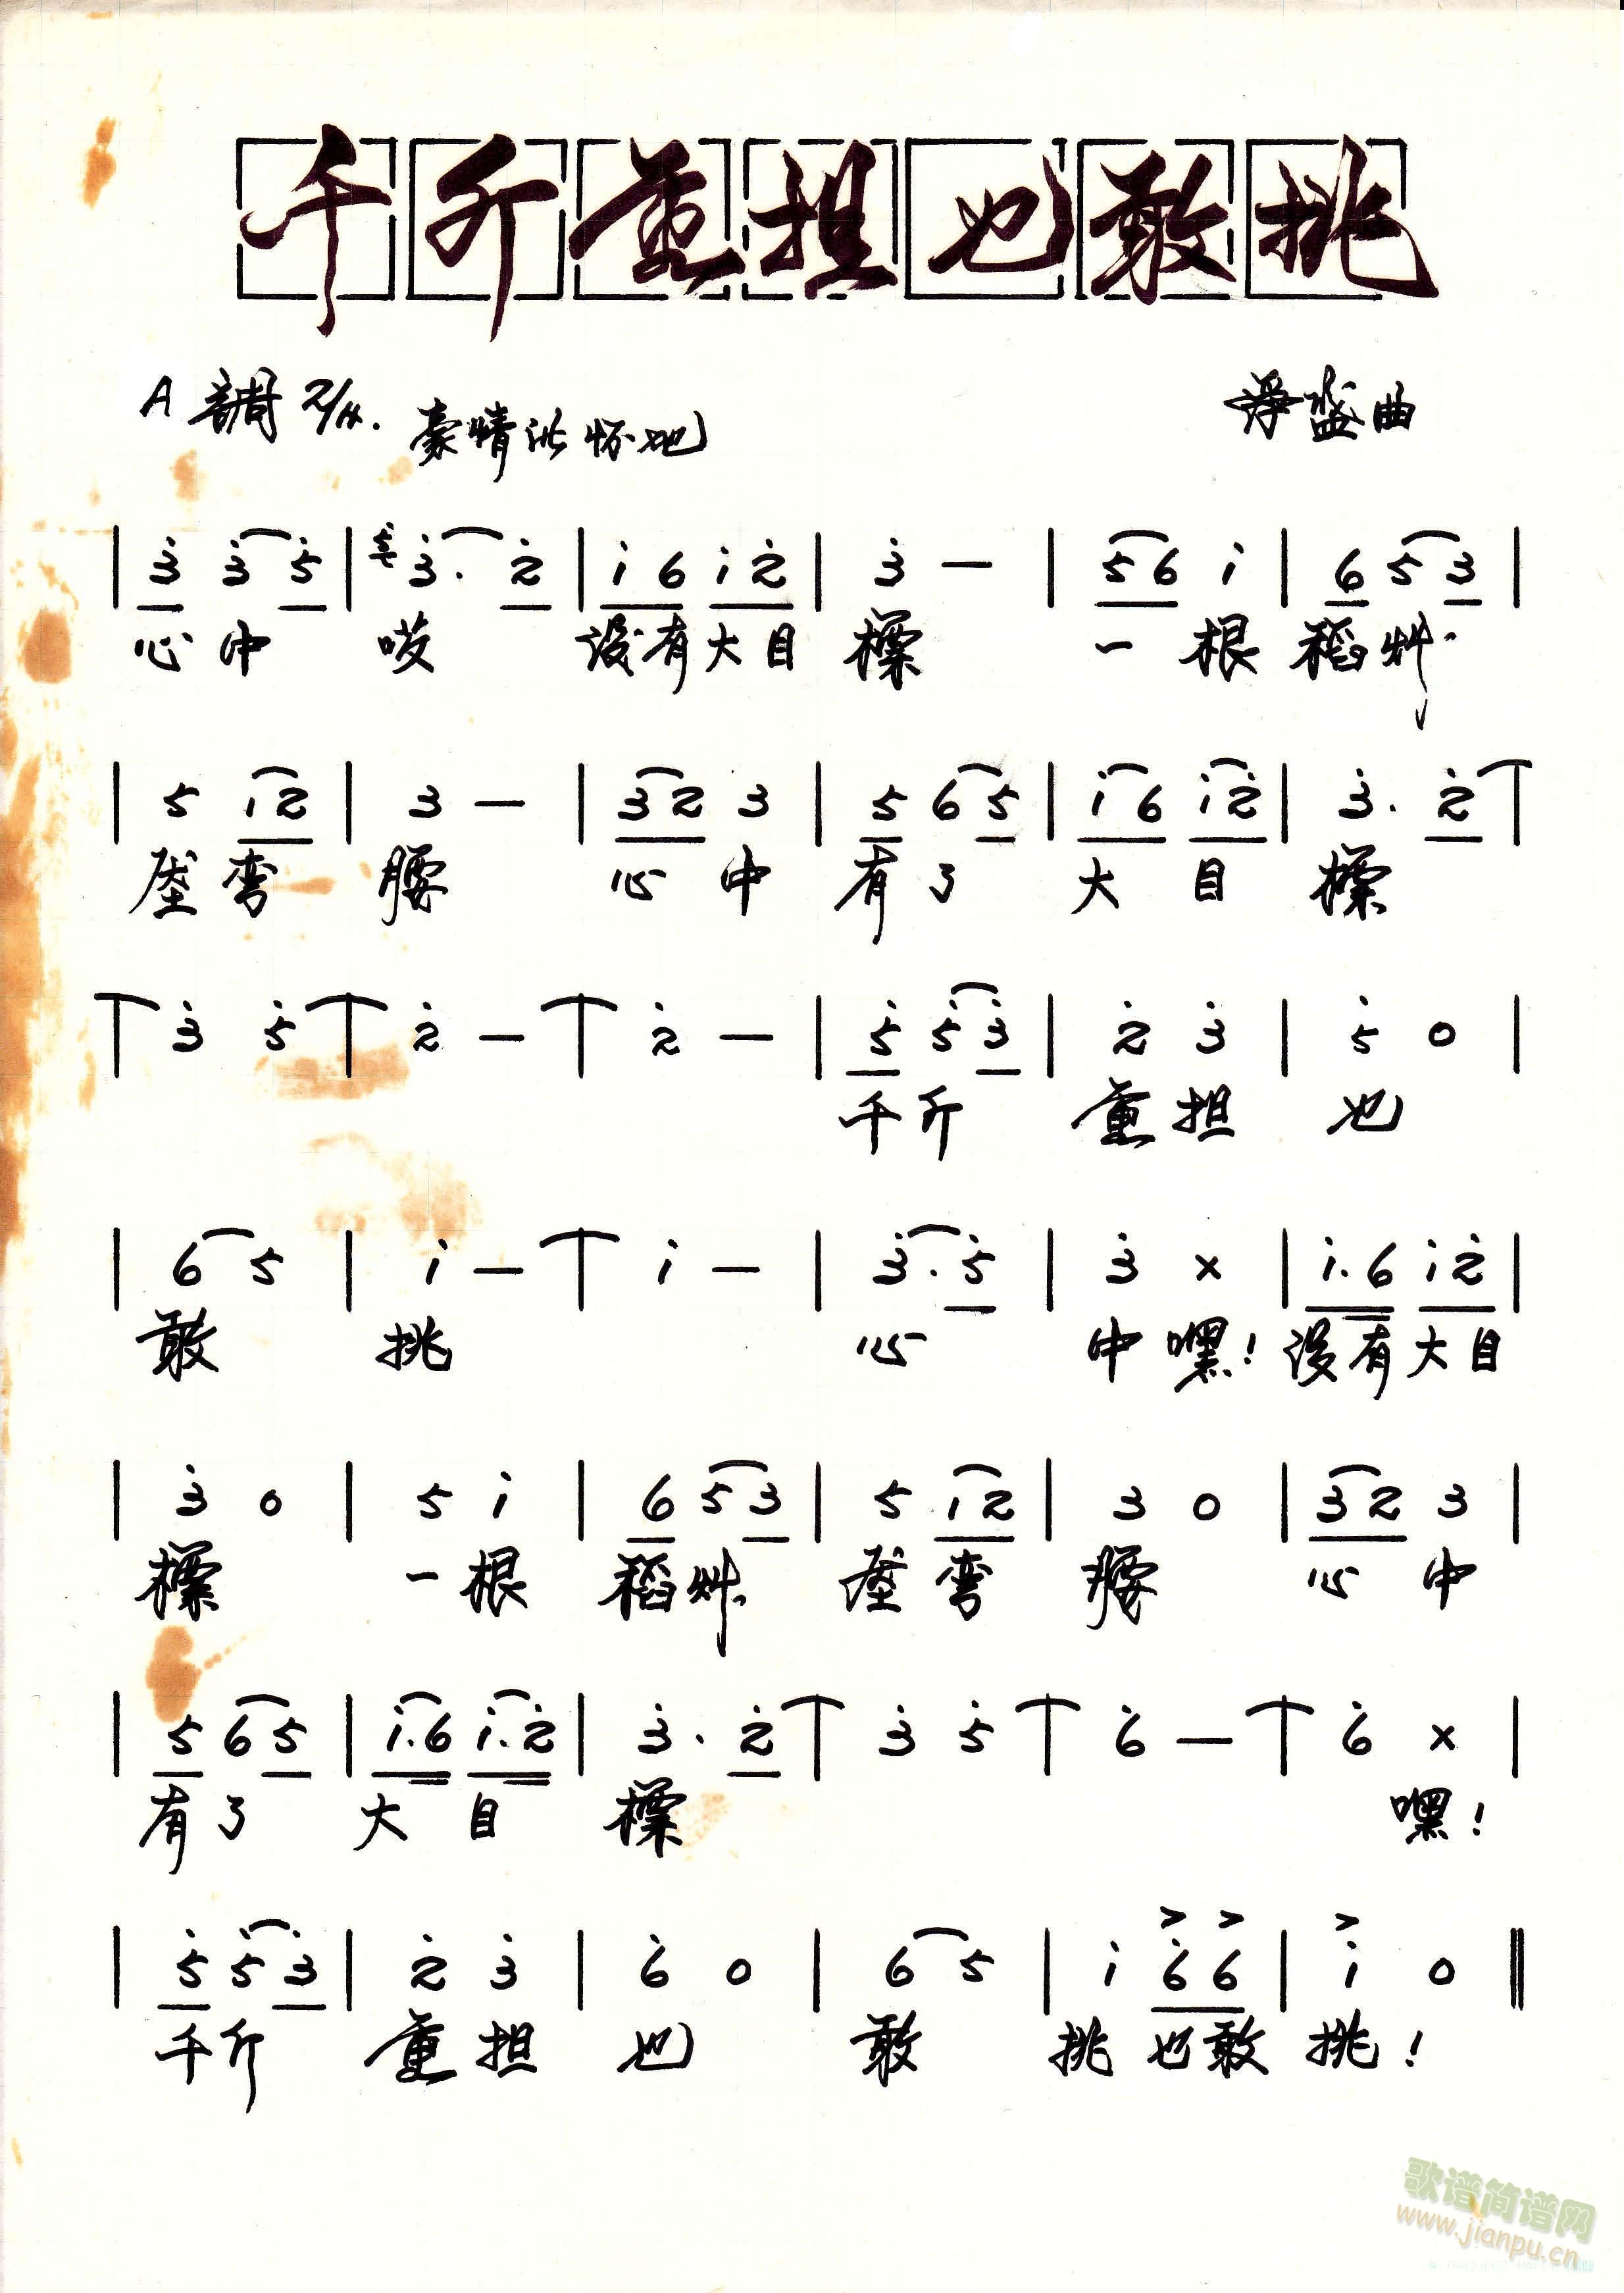 千斤重担也敢挑
A調 2/4. 豪情满怀地 浄盛曲
| 3̇ 3̇ 5̇ | 3̇. 2̇ | i 6 i 2̇ | 3̇ — | 5 6 i | 6 5 3 |
心 中 哎 没有大目 標 一 根 稻艸
| 5 i 2 | 3 — | 3 2 3 | 5 6 5 | i 6 i 2̇ | 3̇. 2̇ |
压 弯 腰 心 中 有 了 大 目 標
| 3̇ 5̇ | 2̇ — | 2̇ — | 5̇ 5̇ 3̇ | 2̇ 3̇ | 5̇ 0 |
千斤 重担 也
| 6 5 | i — | i — | 3̇. 5̇ | 3̇ × | i. 6 i 2̇ |
敢 挑 心 中 嘿! 没有大目
| 3̇ 0 | 5 i | 6 5 3 | 5 i 2 | 3 0 | 3 2 3 |
標 一根 稻艸 压 弯 腰 心 中
| 5 6 5 | i. 6 i. 2̇ | 3̇. 2̇ | 3̇ 5̇ | 6̇ — | 6̇ × |
有 了 大 目 標 嘿!
| 5̇ 5̇ 3̇ | 2̇ 3̇ | 6̇ 0 | 6 5 | i 6̇ 6̇ | i 0 ‖
千斤 重担 也 敢 挑 也敢 挑!
歌谱简谱网
www.jianpu.cn